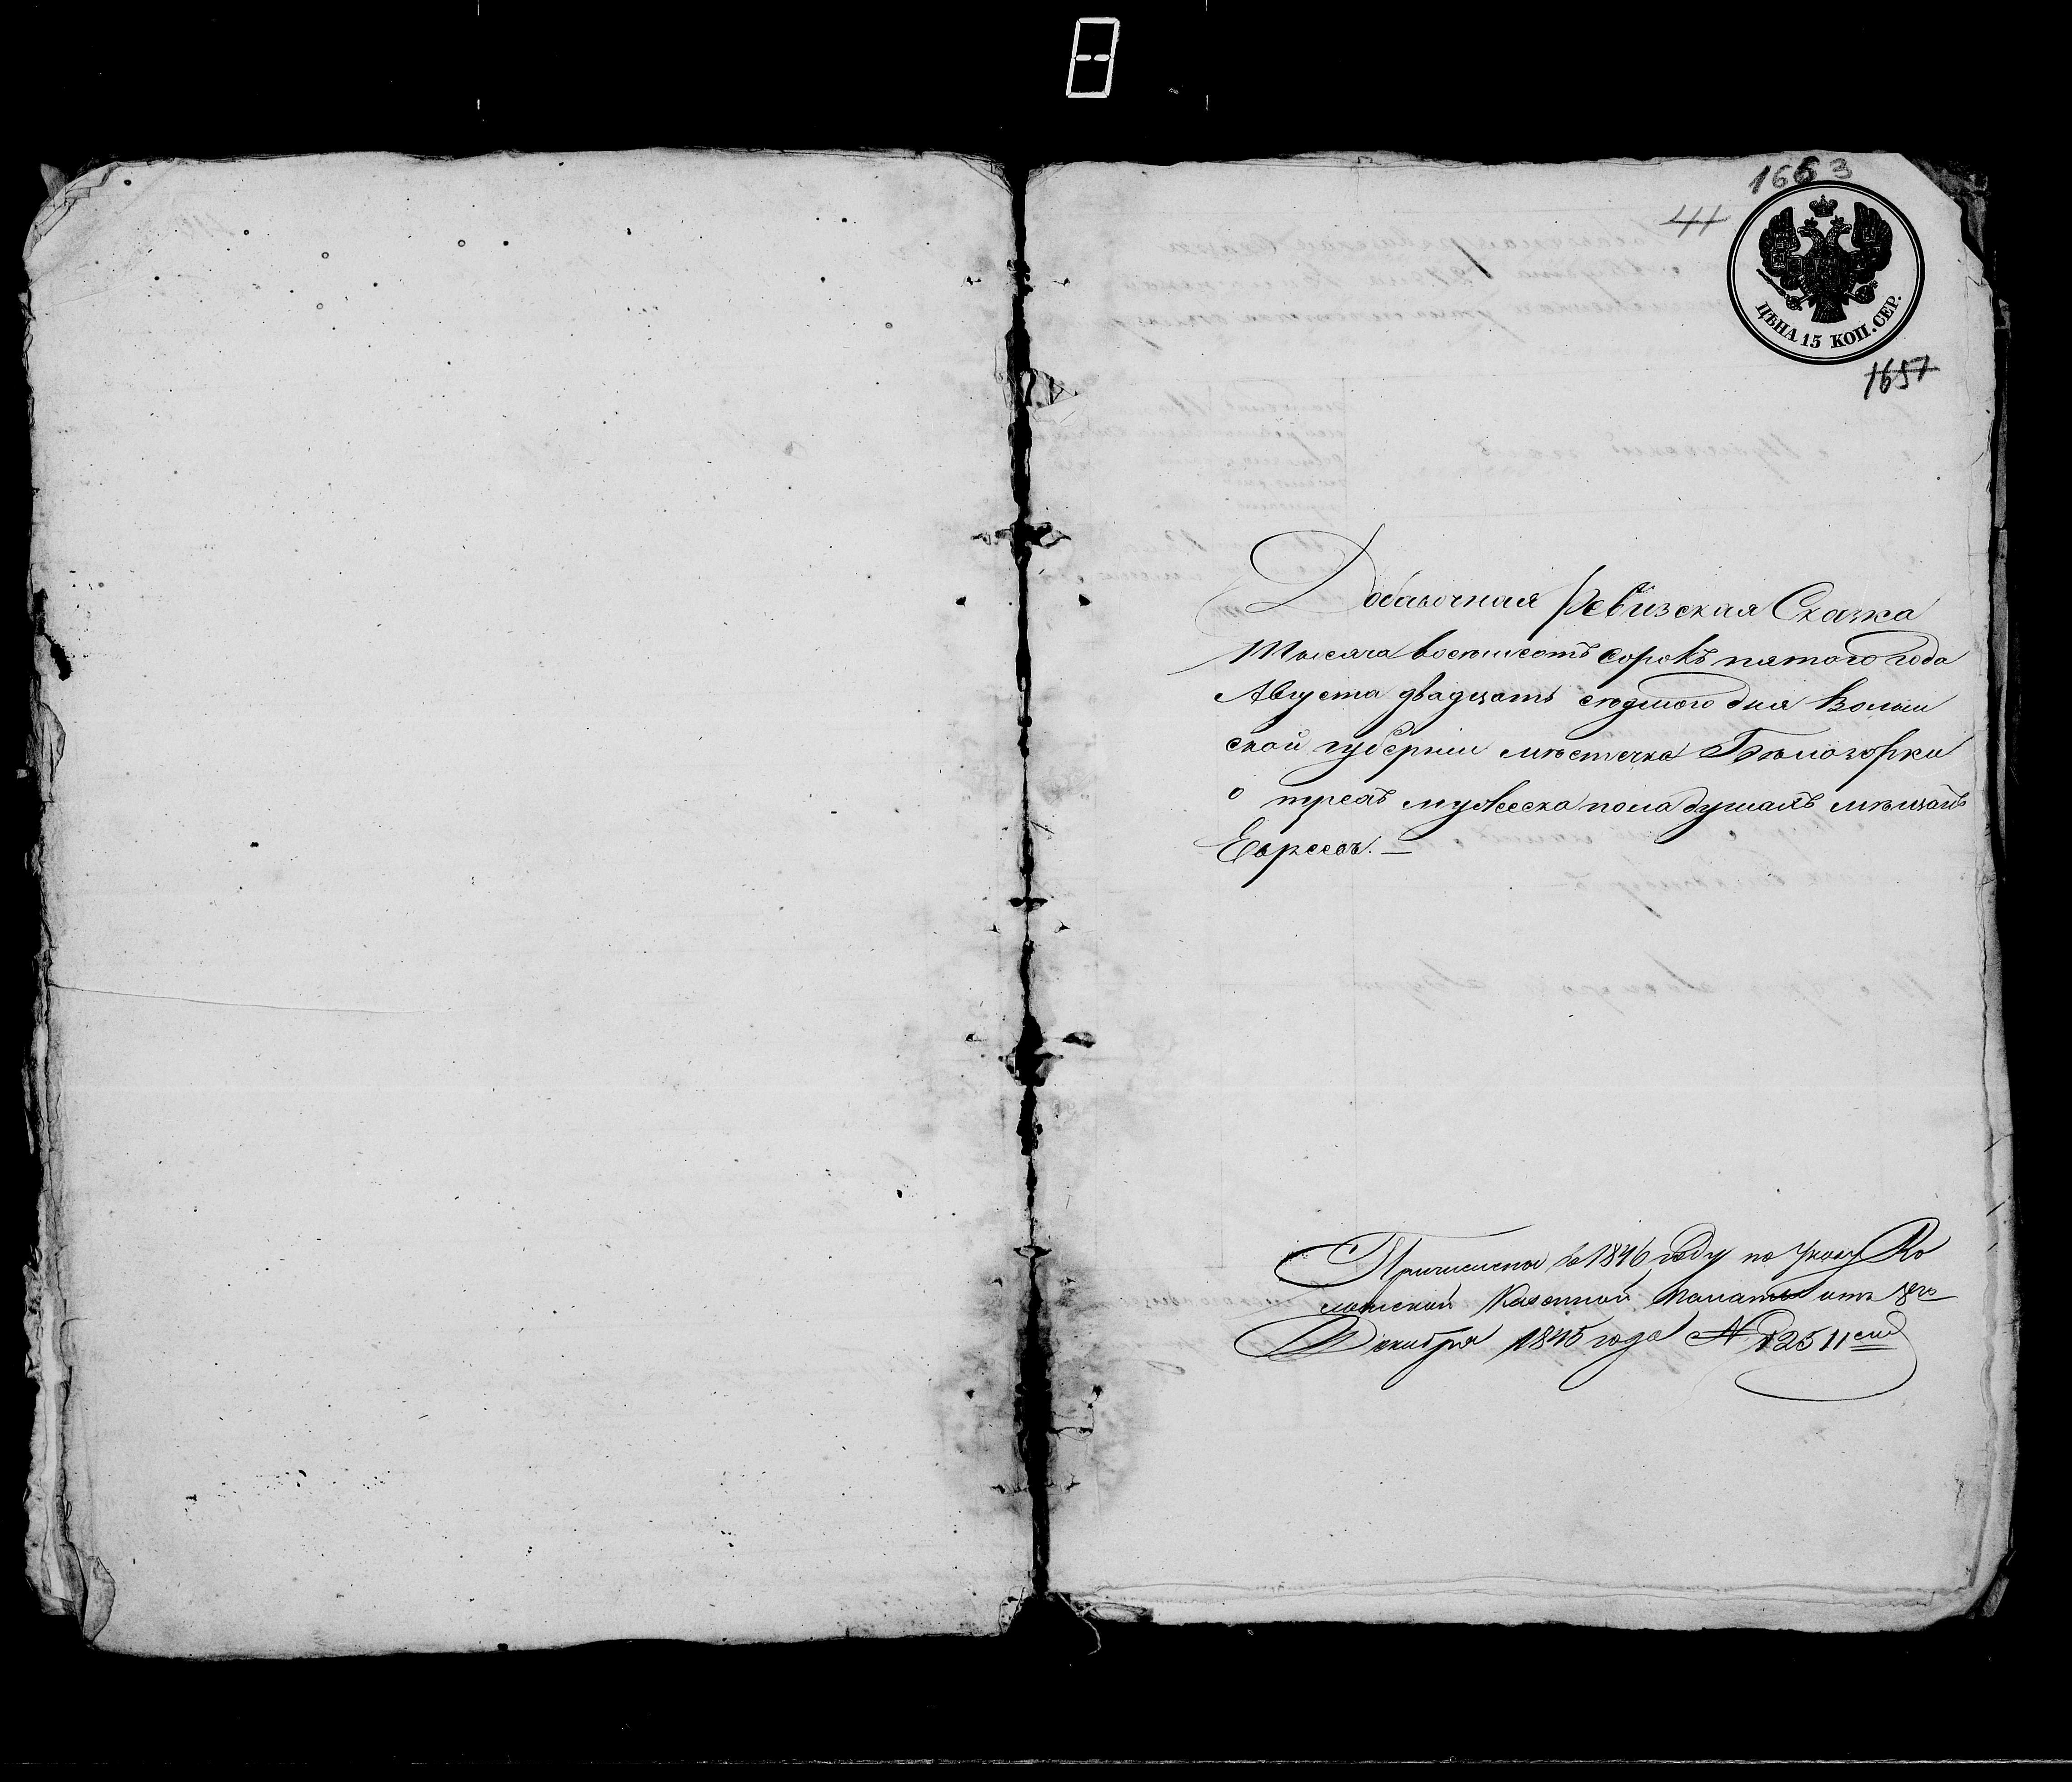 1663
41
ЦѢНА 15 КОП. СЕР.
1657
Добавочная Ревизская Сказка
Тысяча восемьсотъ сорокъ пятого года
Августа двадцать седмого дня Волын
ской губерніи мѣстечка Бѣлозорки
о трехъ мужеска пола душахъ мѣщанъ
Евреевъ. —
Причислена въ 1846 году по указу Во
лынской Казенной Палаты отъ 18го
Декабря 1845 года № 12511